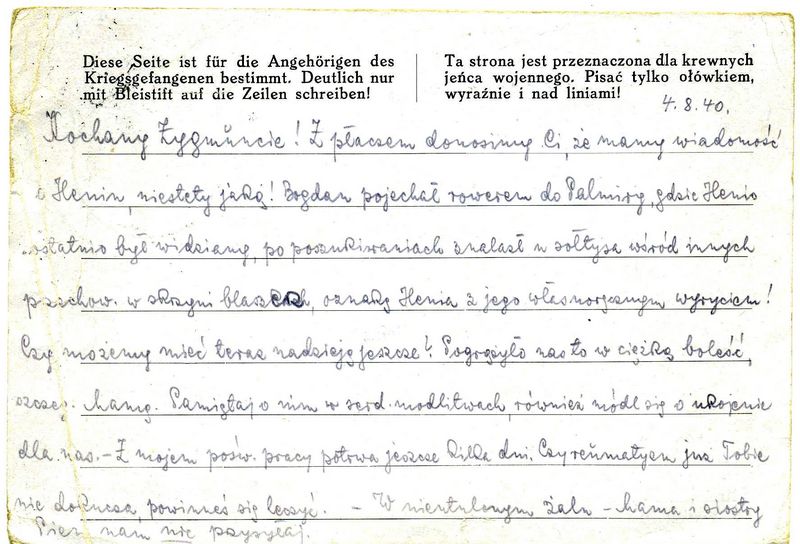 Diese Seite ist für die Angehörigen des
Kriegsgefangenen bestimmt. Deutlich nur
mit Bleistift auf die Zeilen schreiben!
Ta strona jest przeznaczona dla krewnych
jeńca wojennego. Pisać tylko ołówkiem,
wyraźnie i nad liniami!
4.8.40.
Kochany Zygmuncie! Z płaczem donosimy Ci, że mamy wiadomość
o Heniu, niestety jaką! Bogdan pojechał rowerem do Palmiry, gdzie Henio
ostatnio był widziany, po poszukiwaniach znalazł u sołtysa wśród innych
przechow. w skrzyni blaszek, oznakę Henia z jego własnoręcznym wyryciem!
Czy możemy mieć teraz nadzieję jeszcze? Pogrążyło nas to w ciężką boleść,
szczeg. Mamę. Pamiętaj o nim w serd. modlitwach, również módl się o ukojenie
dla nas. – Z mojem pośw. pracy potrwa jeszcze kilka dni. Czy reumatyzm już Tobie
nie dokucza, powinneś się leczyć. – W nieutulonym żalu – Mama i siostry
Pien nam nie przysyłaj.